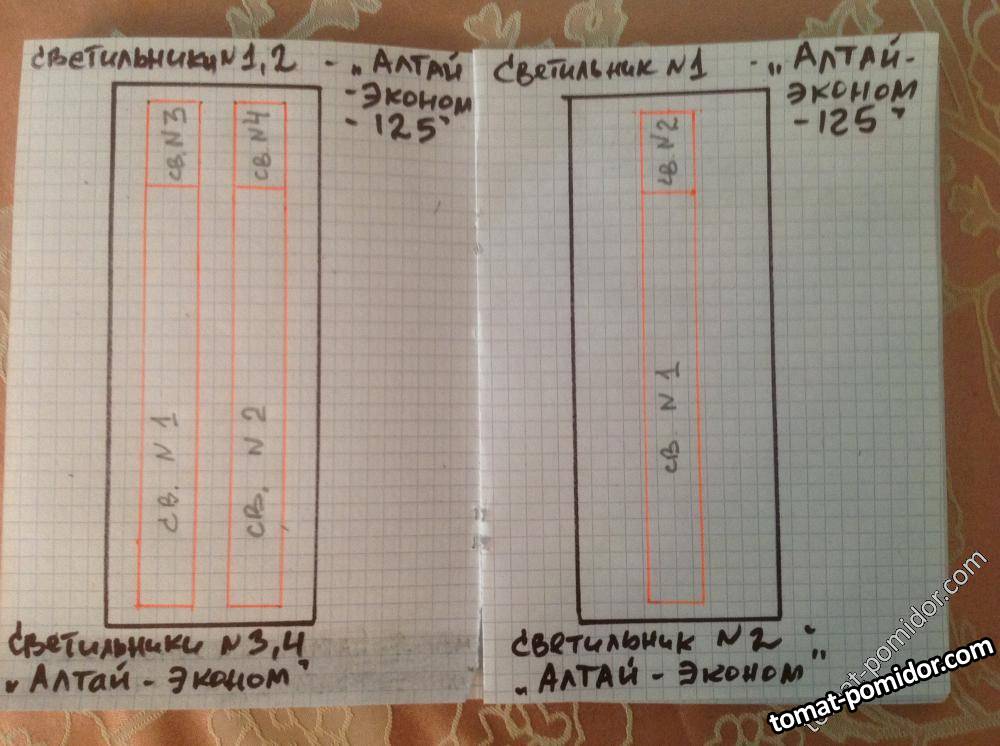 Светильники N1,2 - „Алтай
-Эконом
-125"
св. N3
св. N4
св. N1
св. N2
Светильники N3,4
„Алтай - Эконом"
Светильник N1 - „Алтай-
Эконом
-125"
св. N2
св. N1
Светильник N2
„Алтай - Эконом"
tomat-pomidor.com
tomat-pomidor.com